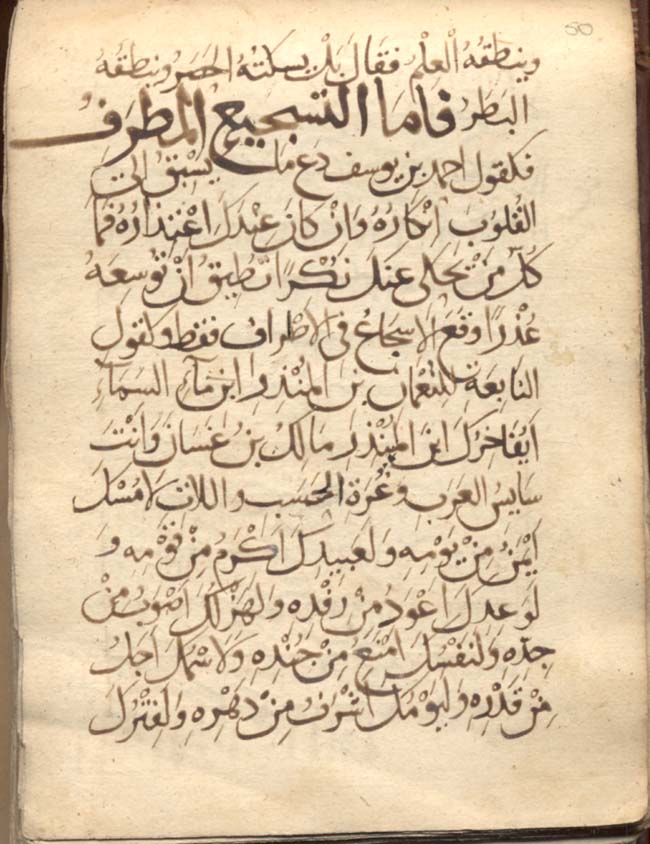 50
وينطقه العلم فقال بل يسكته الحصر وينطقه
البطر فاما التسجيع المطرف
فكقول احمد بن يوسف دع ما يسبق الى
القلوب انكاره وان كان عندك اعتذاره فما
كل من يحكى عنك نكرا تطيق ان توسعه
عذرا وقع الاسجاع فى الاطراف فقط وكقول
النابغة للنعمان بن المنذر ابن ماء السماء
ايفاخرك ابن المنذر مالك بن غسان وانت
سايس العرب وغرة الحسب واللات لامسك
ايمن من يومه ولعبيدك اكرم من قومه و
لوعدك اعود من رفده ولهزلك اصوب من
جده ولنفسك امنع من جنده ولاسمك اجل
من قدره وليومك اشرف من دهره ولفترك